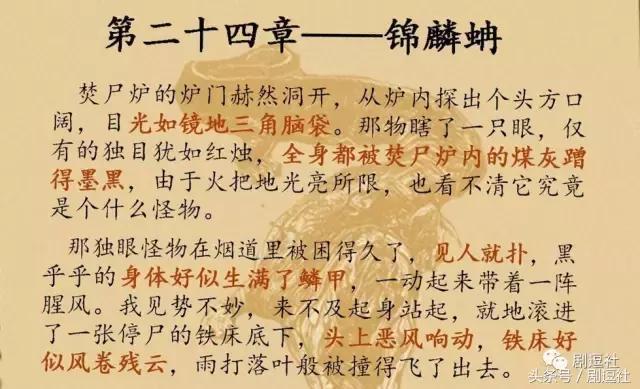 第二十四章——锦麟蚺
焚尸炉的炉门赫然洞开，从炉内探出个头方口
阔，目光如镜地三角脑袋。那物瞎了一只眼，仅
有的独目犹如红烛，全身都被焚尸炉内的煤灰蹭
得墨黑，由于火把地光亮所限，也看不清它究竟
是个什么怪物。
那独眼怪物在烟道里被困得久了，见人就扑，黑
乎乎的身体好似生满了鳞甲，一动起来带着一阵
腥风。我见势不妙，来不及起身站起，就地滚进
了一张停尸的铁床底下，头上恶风响动，铁床好
似风卷残云，雨打落叶般被撞得飞了出去。
剧逗社
头条号／剧逗社